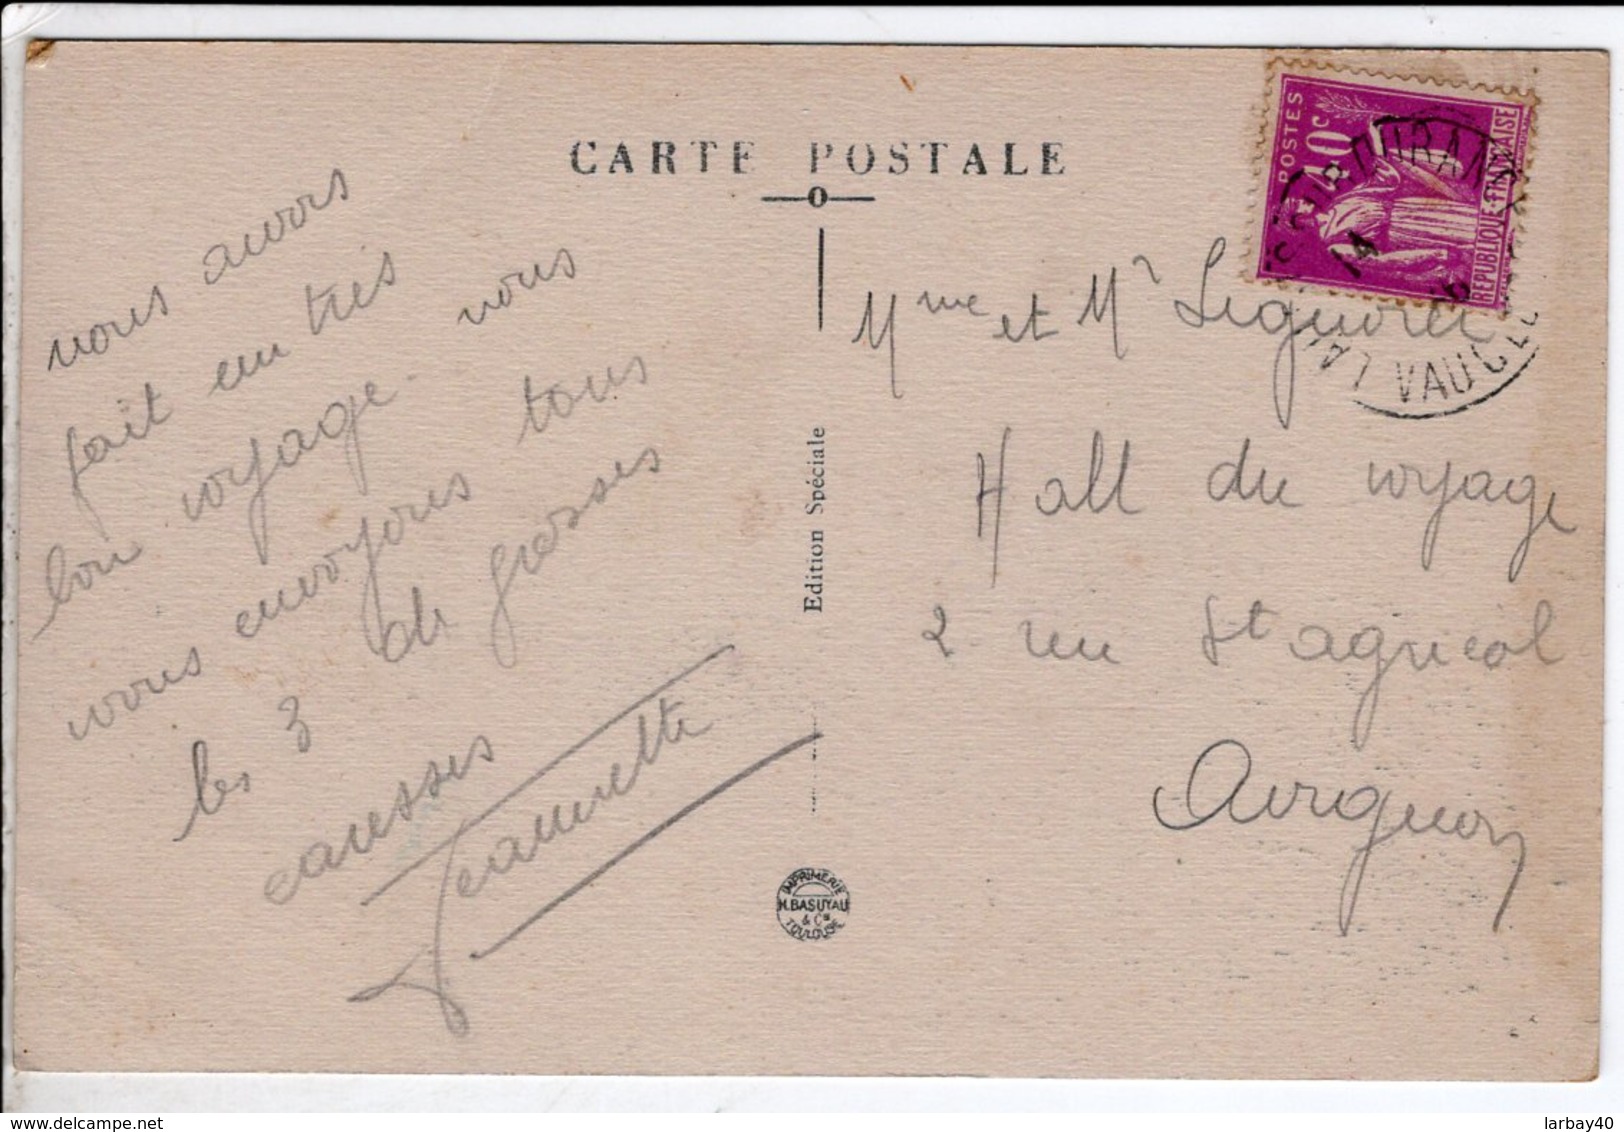 CARTE POSTALE
nous avons
fait un très
bon voyage. nous
vous envoyons tous
les 3 de grosses
caresses
Jeannette
Edition Spéciale
IMPRIMERIE
H. BASUYAU
& Cie
TOULOUSE
POSTES
40c
REPUBLIQUE FRANÇAISE
14
VAUCL
Mme et Mr
Hall du voyage
2 rue St agricol
Avignon
larbay40